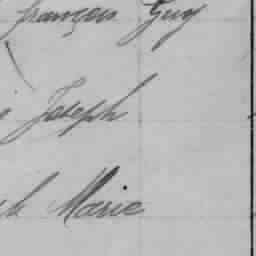 françois Guy
Joseph
Marie